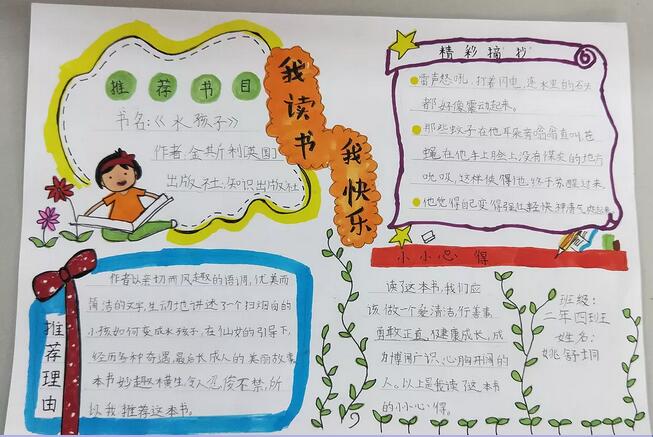 推荐书目
书名:《水孩子》
作者:金斯利[英国]
出版社:知识出版社
我读书
我快乐
精彩摘抄
雷声怒吼,打着闪电,连水里的石头
都好像震动起来。
那些蚊子在他耳朵旁嗡嗡直叫,苍
蝇在他手上脸上没有煤灰的地方
叮叮,这样使得他终于苏醒过来。
他觉得自己变得强壮轻快
推荐理由
作者以亲切而风趣的语调,优美而
简洁的文字,生动地讲述了一个扫烟囱的
小孩如何变成水孩子,在仙女的引导下,
经历各种奇遇,最后长成人的美丽故事。
本书妙趣横生,令人忍俊不禁,所
以我推荐这本书。
小小心得
读了这本书,我们应
该做一个爱清洁、行善事、
勇敢正直、健康成长,成
为博闻广识、心胸开阔的
人。以上是我读了这本书
的小小心得。
班级:
二年四班
姓名:
姚舒